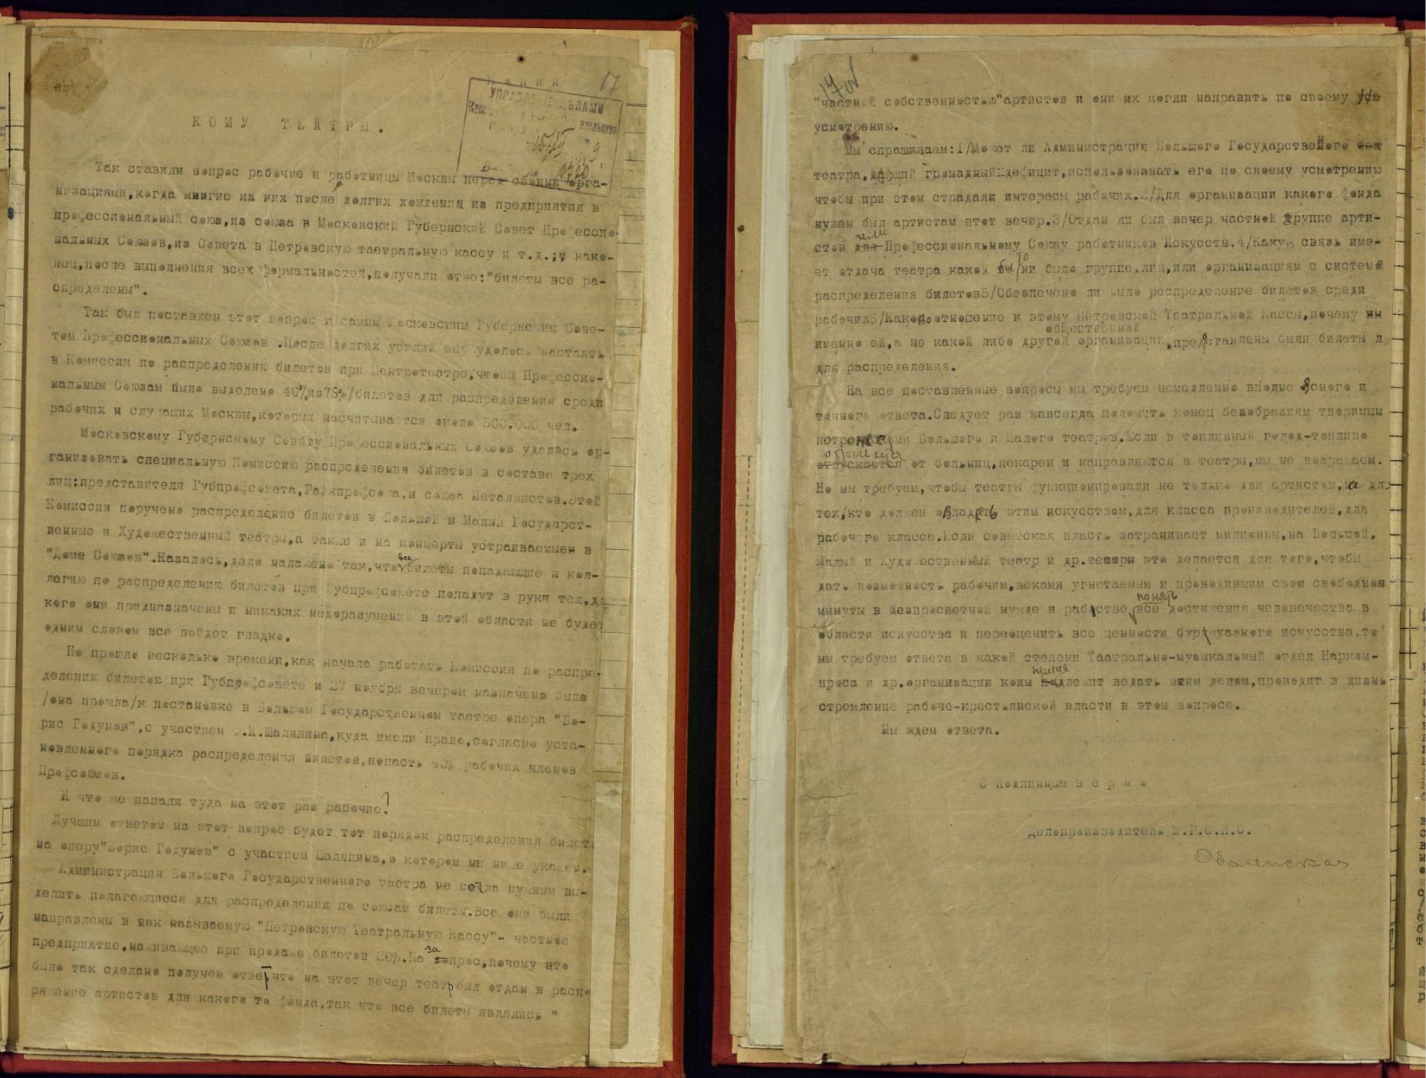 17
УПРАВЛЕНИЕ ДЕЛАМИ
КОМУ ТЕАТРЫ.
Так ставили вопрос рабочие и работницы Москвы перед своими орга-
низациями,когда многие из них после долгих хождений из предприятия в
профессиональный союз,из союза в Московский Губернский Совет Професси-
нальных Союзов,из Совета в Петровскую таетральную кассу и т.д.,и нако-
нец,после выполнения всех формальностей,получали отче:"билеты все ра-
спределены".
Так был поставлен этот вопрос и самим Московским Губернским Сове-
том Профессиональных Союзов .После долгих усилий ему удалось настаять
в Комиссии по распределению билетов при Центротеатре,чтобы Професси-
нальным Союзам было выделено 40%/из75%/билетов для распределения среди
рабочих и служащих Москвы,которых насчитывается около 500.000 чел.
Московскому Губернскому Совету Профессиональных Союзов удалось ор-
ганизовать специальную Комиссию распределения билетов в составе трех
лиц:представителя Губпрофсовета,Райкпрофсожа,и союза Металлистов.Этой
Комиссии поручено распределение билетов в Большой и Малый Государст-
венные и Художественный театры,а также и на концерты устраиваемые в
"Доме Союзов".Казалось,дело налажено так,что все билеты попадающие в кол-
легию по распределению билетов при Губпрофсовете попадут в руки тех,дл
кого они предназначены и никаких недоразумений в этой области не будет
одним словом все пойдет гладко.
Но прошло несколько времени,как начала работать Комиссия по распре-
делению билетов при Губпрофсовете и 27 ноября вечером назначена была
/она прошла/к постановке в Большом Государственном таетре опера "Бо-
рис Годунов",с участием Ф.И.Шаляпина,куда имели право,согласно уста-
новленного порядка распределения билетов,попасть 40% рабочих членов
Профсоюзов.
И что же попали туда на этот раз рабочие?
Лучшим ответом на этот вопрос будет тот порядок распределения билет
на оперу"Борис Годунов" с участием Шаляпина,о котором мы ниже укажем.
Администрация Большого Государственного таетра не сочла нужным вы-
делить полагающиеся для распределения по союзам билеты.Все они были
направлены в так называемую "Петровскую Театральную Кассу"- частное
предприятие,наживающее при продаже билетов 20%.На за вопрос,почему это
было так сделано получен ответ,что на этот вечер театр был отдан в расп
ряжение артистов для какого то фонда,так что все билеты являлись "
17об
"частной собственностью"артистов и они их могли направить по своему
усмотрению.
Мы спрашиваем:I/Может ли Администрация Большого Государственного
театра,дающий громадный дефицит,использавать его по своему усмотрению
чтобы при этом страдали интересы рабочих.2/Для организации какого фонда
нужен был артистам этот вечер.3/Отдан ли был вечер частной группе арти-
стов или Профессиональному Союзу работников Искусств.4/Какую связь име-
ет отдача театра какой бы то ни было группе,лиц,или организациям с системой
распределения билетов5/Обеспечено ли было распределение билетов среди
рабочих6/Какое отношение к этому Петровской Театральной Кассы,почему
именно ей,а не какой либо другой общественной организации,представлены были билеты
для распределения.
На все поставленные вопросы мы требуем немедленно вполне ясного и
точного ответа.Следует раз навсегда положить конец безобразиям творимым
Большого и Малого театров.Если в топливный голод-топливо
отнимается от больниц,пекарен и направляются в театры,мы не возражаем.
Но мы требуем,чтобы театры функционировали не только для артистов,а для
тех,кто должен овладеть этим искусством,для класса производителей,для
рабочего класса.Если Советская власть затрачивает миллионы,на Большой,
Малый и Художественный театр и др.театры это делается для того,чтобы
дать возможность рабочим,веками угнетаемым и проводившим свои свободныя
минуты в безпросветной нужде и рабстве,понять все достижения человечества в
области искусства и переоценить все ценности буржуазного искусства,то
мы требуем ответа в какой степени Таатрально-музыкальный отдел Нарком-
проса и др.организации коим надлежит ведать этим делом,проводит в жизнь
стромление рабоче-крестьянской власти в этом вопросе.
Мы ждем ответа.
С подлинным в е р н о
Делопроизводитель М.Г.С.П.С.
Оболенская